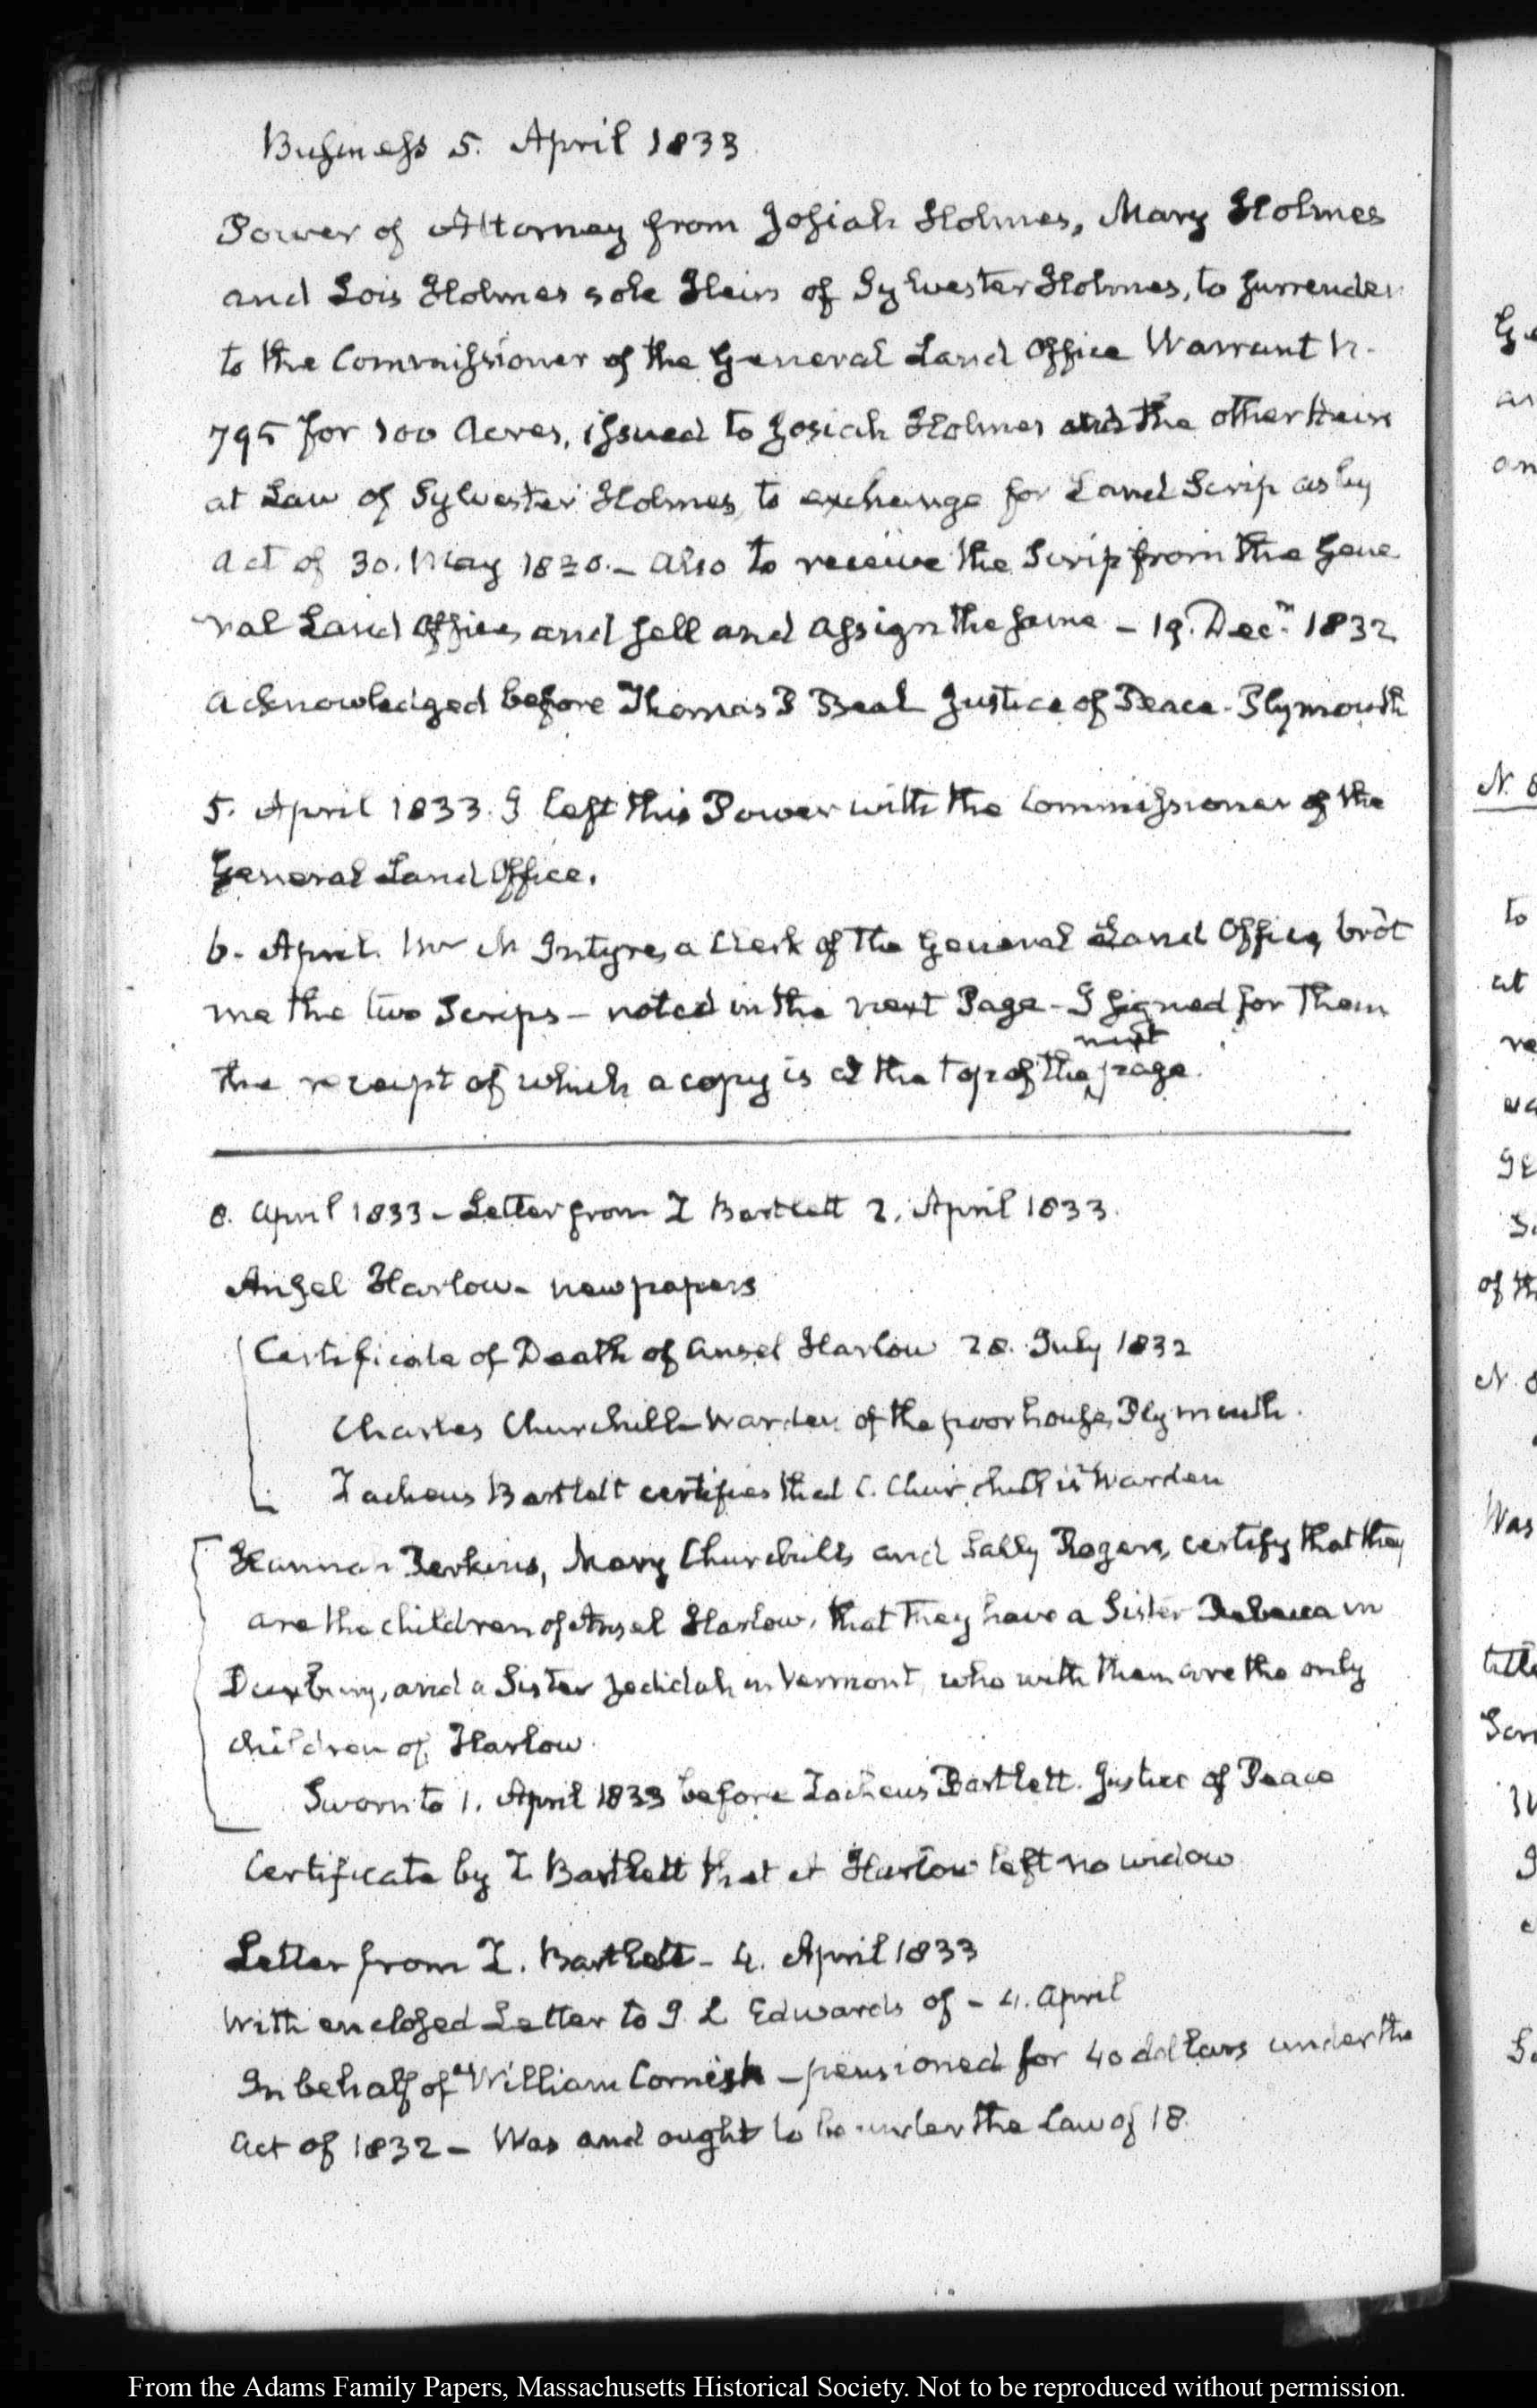 Business 5. April 1833
Power of Attorney from Josiah Holmes, Mary Holmes
and Lois Holmes sole Heirs of Sylvester Holmes, to surrender
to the Commissioner of the General Land Office Warrant N.
795 for 100 Acres, issued to Josiah Holmes and the other heirs
at Law of Sylvester Holmes, to exchange for Land Scrip as by
Act of 30. May 1830. - Also to receive the Scrip from the Gene
ral Land Office, and sell and assign the same - 19. Decr. 1832
Acknowledged before Thomas P Beal Justice of Peace - Plymouth
5. April 1833. I left this Power with the Commissioner of the
General Land Office.
6. April. Mr McIntyre, a Clerk of the General Land Office, brot
me the two Scrips - noted in the next Page - I signed for them
the receipt of which a copy is at the top of the next page.
8. April 1833 - Letter from Z Bartlett 2. April 1833.
Ansel Harlow - new papers
Certificate of Death of Ansel Harlow 28. July 1832
Charles Churchill - Warden of the poor house, Plymouth.
Zacheus Bartlett certifies that C. Churchill is Warden
Hannah Perkins, Mary Churchill and Sally Rogers, certify that they
are the children of Ansel Harlow, that they have a Sister Rebecca in
Duxbury, and a Sister Jedidah in Vermont, who with them are the only
children of Harlow.
Sworn to 1. April 1833 before Zacheus Bartlett. Justice of Peace
Certificate by Z Bartlett that A Harlow left no widow
Letter from Z. Bartlett - 4. April 1833
With enclosed Letter to J. L Edwards of - 4. April
In behalf of William Cornish - pensioned for 40 dollars under the
Act of 1832 - Was and ought to be under the Law of 18
From the Adams Family Papers, Massachusetts Historical Society. Not to be reproduced without permission.